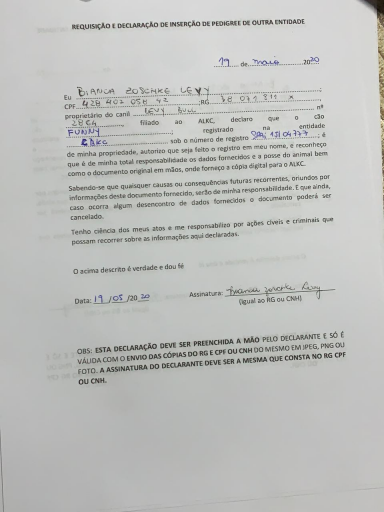 REQUISIÇÃO E DECLARAÇÃO DE INSERÇÃO DE PEDIGREE DE OUTRA ENTIDADE
19 de maio 2020
Eu BIANCA ZOSCHKE LEVY ;
CPF 428 407 058 42 ;RG 38 071 811 X ,
proprietário do canil LEVY BULL nº
2864, filiado ao ALKC, declaro que o cão
FUNNY; registrado na entidade
sob o número de registro ; é
de minha propriedade, autorizo que seja feito o registro em meu nome, e reconheço
que é de minha total responsabilidade os dados fornecidos e a posse do animal bem
como o documento original em mãos, onde forneço a cópia digital para o ALKC.
Sabendo-se que quaisquer causas ou consequências futuras recorrentes, oriundos por
informações deste documento fornecido, serão de minha responsabilidade. E que ainda,
caso ocorra algum desencontro de dados fornecidos o documento poderá ser
cancelado.
Tenho ciência dos meus atos e me responsabilizo por ações cíveis e criminais que
possam recorrer sobre as informações aqui declaradas.
O acima descrito é verdade e dou fé
Data: 19 /05 /20 20 Assinatura:
(Igual ao RG ou CNH)
OBS: ESTA DECLARAÇÃO DEVE SER PREENCHIDA A MÃO PELO DECLARANTE E SÓ É
VÁLIDA COM O ENVIO DAS CÓPIAS DO RG E CPF OU CNH DO MESMO EM JPEG, PNG OU
FOTO. A ASSINATURA DO DECLARANTE DEVE SER A MESMA QUE CONSTA NO RG CPF
OU CNH.